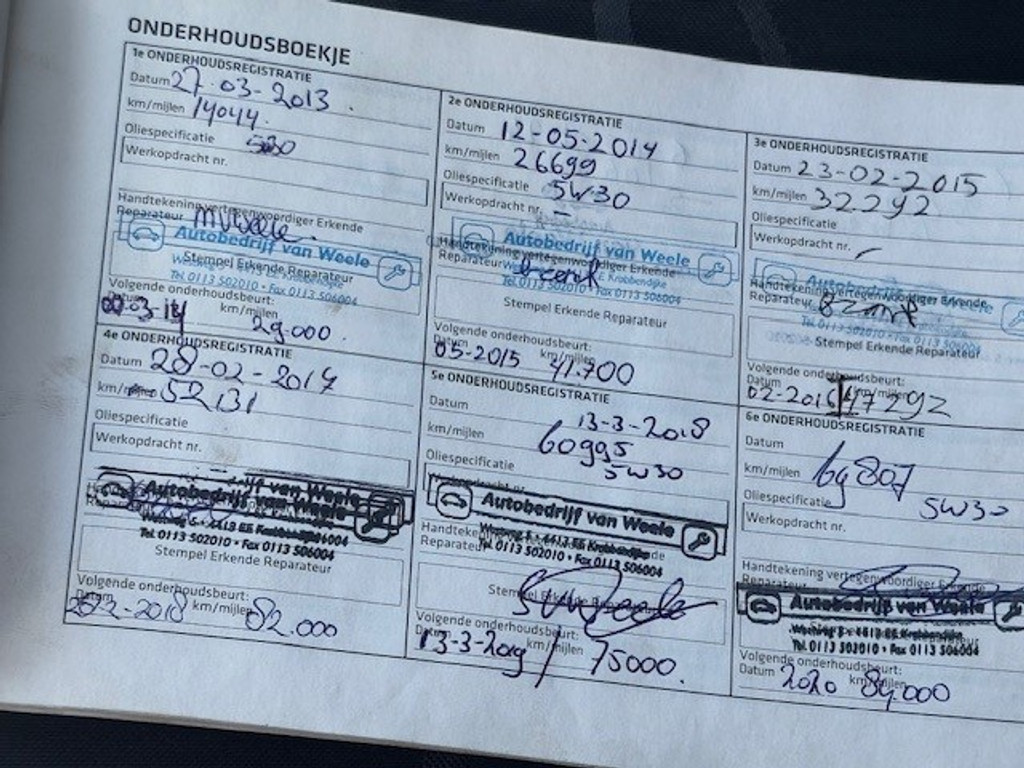 ONDERHOUDSBOEKJE
1e ONDERHOUDSREGISTRATIE
Datum 27-03-2013
km/mijlen 14044.
Oliespecificatie 530
Werkopdracht nr.
Handtekening vertegenwoordiger Erkende
Reparateur
Autobedrijf van Weele
Stempel Erkende Reparateur
Tel. 0113 502010 • Fax 0113 506004
Volgende onderhoudsbeurt:
km/mijlen 29.000
2e ONDERHOUDSREGISTRATIE
Datum 12-05-2014
km/mijlen 26699
Oliespecificatie 5W30
Werkopdracht nr. –
Autobedrijf van Weele
Handtekening vertegenwoordiger Erkende
Reparateur
Tel. 0113 502010 • Fax 0113 506004
Stempel Erkende Reparateur
Volgende onderhoudsbeurt:
05-2015 km/mijlen 41.700
3e ONDERHOUDSREGISTRATIE
Datum 23-02-2015
km/mijlen 32292
Oliespecificatie
Werkopdracht nr. –
Autobedrijf van Weele
Handtekening vertegenwoordiger Erkende
Reparateur
Tel. 0113 502010 • Fax 0113 506004
Stempel Erkende Reparateur
Volgende onderhoudsbeurt:
Datum km/mijlen
02-2016 47292
4e ONDERHOUDSREGISTRATIE
Datum 28-02-2017
km/mijlen 52131
Oliespecificatie
Werkopdracht nr.
Autobedrijf van Weele
Weelweg 5 • 4413 EE Krabbendijke
Tel. 0113 502010 • Fax 0113 506004
Stempel Erkende Reparateur
Volgende onderhoudsbeurt:
Datum 28-2-2018 km/mijlen 82.000
5e ONDERHOUDSREGISTRATIE
Datum 13-3-2018
km/mijlen 60995
Oliespecificatie 5W30
Werkopdracht nr.
Autobedrijf van Weele
4413 EE Krabbendijke
Tel. 0113 502010 • Fax 0113 506004
Stempel Erkende Reparateur
Volgende onderhoudsbeurt:
Datum 13-3-2019 km/mijlen 75000.
6e ONDERHOUDSREGISTRATIE
Datum
km/mijlen 69807
Oliespecificatie 5W30
Werkopdracht nr.
Handtekening vertegenwoordiger Erkende
Reparateur
Autobedrijf van Weele
4413 EE Krabbendijke
Tel. 0113 502010 • Fax 0113 506004
Volgende onderhoudsbeurt:
Datum 2020 km/mijlen 84.000